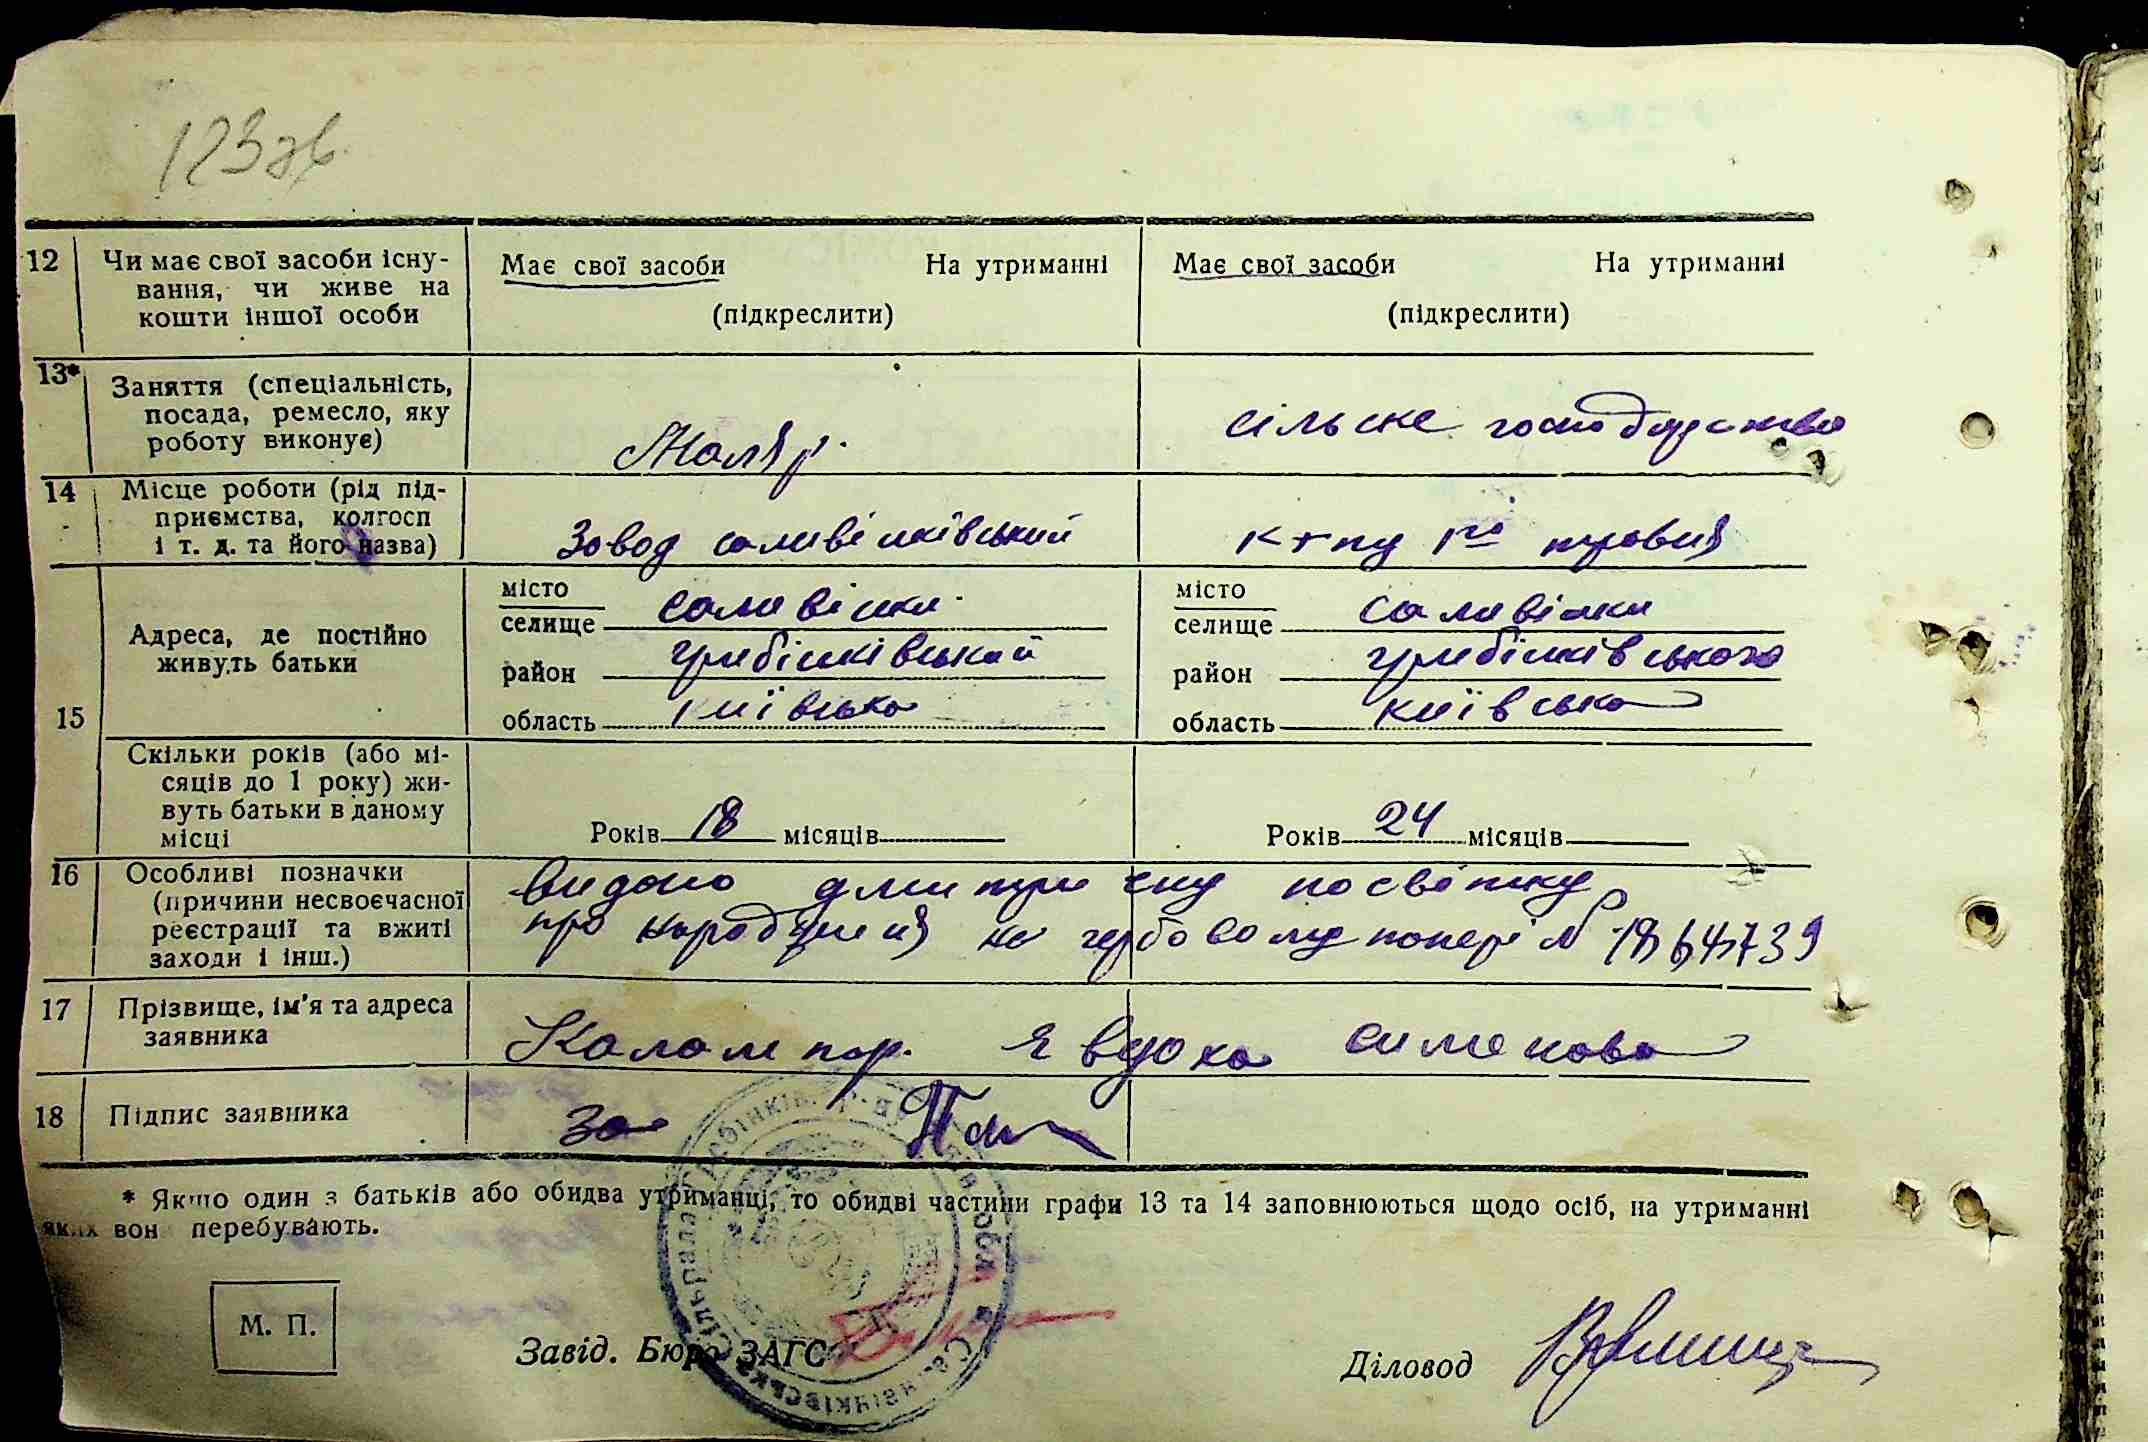 123зв.
12 Чи має свої засоби існу- Має свої засоби На утриманні Має свої засоби На утриманні
вання, чи живе на
кошти іншої особи (підкреслити) (підкреслити)
13* Заняття (спеціальність, сільське господарство
посада, ремесло, яку
роботу виконує) Маляр.
14 Місце роботи (рід під-
приємства, колгосп Завод саливінківський 1го травня
і т. д. та його назва)
15 Адреса, де постійно
живуть батьки
місто
селище саливінки місто
селище саливінки
район гребінківський район гребінківського
область київська область київська
Скільки років (або мі-
сяців до 1 року) жи-
вуть батьки в даному
місці Років 18 місяців Років 24 місяців
16 Особливі позначки видано посвітку
(причини несвоєчасної
реєстрації та вжиті про народження на гербовому папері № 1864739
заходи і інш.)
17 Прізвище, ім'я та адреса
заявника Калампар. Явдоха сименовна
18 Підпис заявника за
* Якщо один з батьків або обидва утриманці, то обидві частини графи 13 та 14 заповнюються щодо осіб, на утриманні
яких вони перебувають.
М. П.
Завід. Бюро ЗАГС Діловод